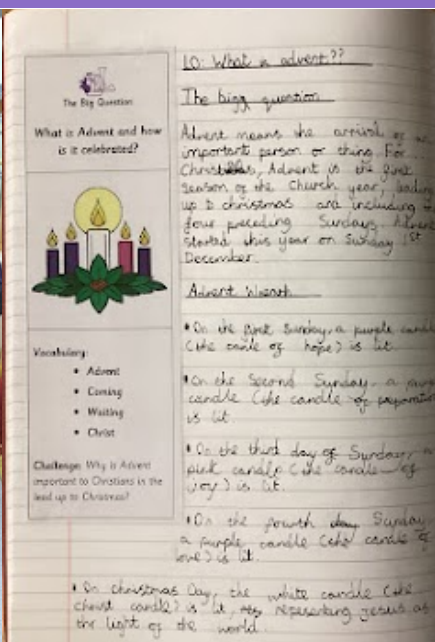 The Big Question
What is Advent and how
is it celebrated?
Vocabulary:
• Advent
• Coming
• Waiting
• Christ
Challenge: Why is Advent
important to Christians in the
lead up to Christmas?
LO: What is advent??
The bigg question
Advent means the arrival of an
important person or thing. For
Advent is the first
season of the Church year, leading
up to christmas and including the
four preceding Sundays. Advent
started this year on Sunday 1st
December.
Advent Wreath
• On the first Sunday, a purple candle
(the canle of hope) is lit.
• On the Second Sunday, a
candle (the candle of preparation
is lit.
• On the third day of Sunday, a
pink candle (the candle of
joy) is lit.
• On the fourth day Sunday,
a purple candle (the candle of
love) is lit.
• On christmas Day, the white candle (the
christ candle) is lit, representing jesus as
the light of the world.